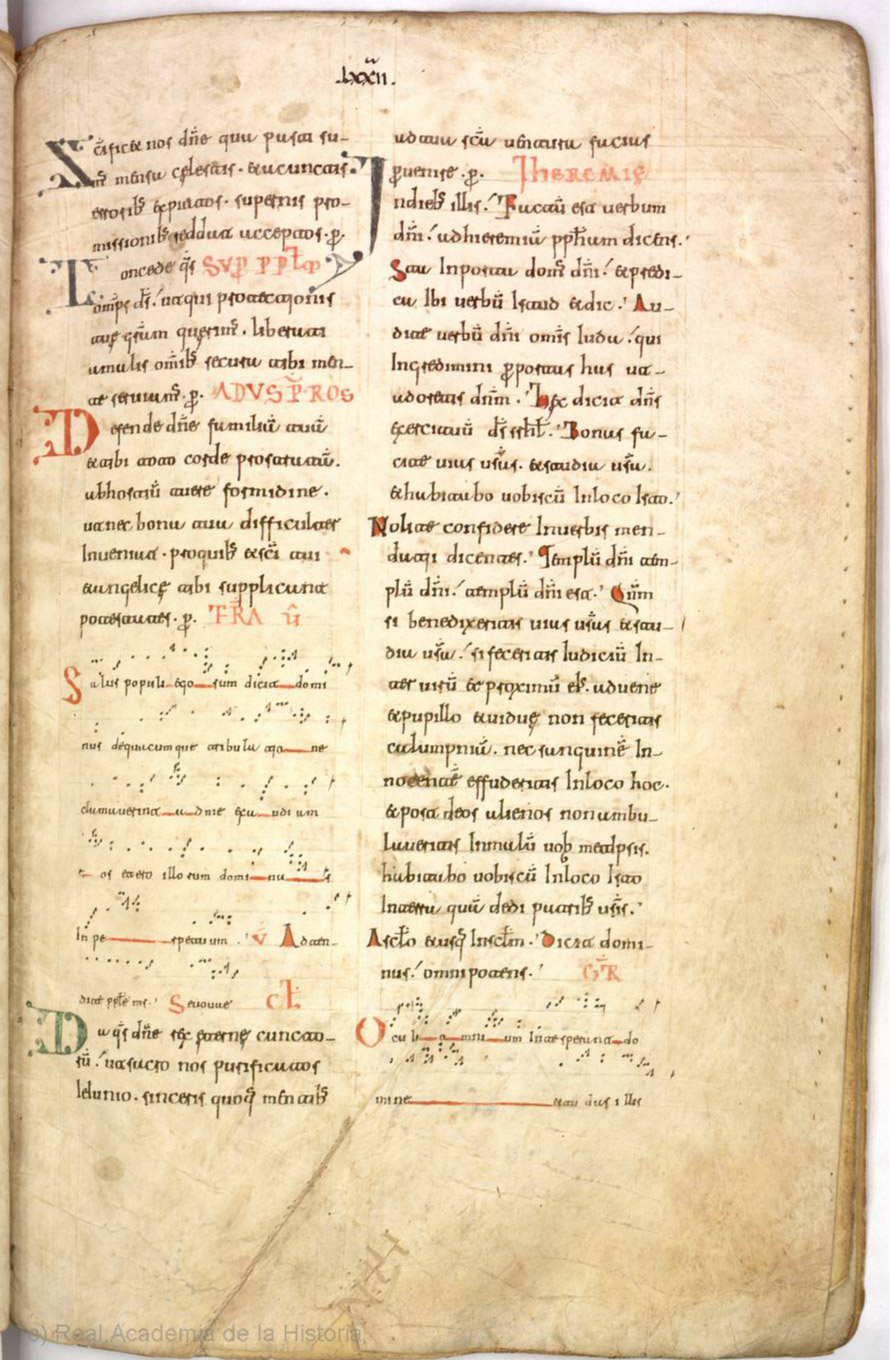 .lxxii.
Scificet nos dñe quu pasta su-
mꝰ mensa cęlestis. & a cunctis
errorib; expiatos. supernis pro-
missionib; reddat acceptos. p̱.
Concede qs̄ SUP PPLM
omps dš. ut a qui protectionis
tuę gr̄am querimꝰ. liberati
a malis omib; secura tibi men-
te seruiamꝰ. p̱. AD VSPROS
Defende dñe familiā tuā
& tibi toto corde prostratā.
ab hostiū tuere formidine.
ut nec bona tua difficultaer
Inueniat. pro quib; et sc̄i tui
euangelicę tibi supplicant
potestates. p̱. FRA U
Salus populi ego sum dicit domi
nus de quacumque tribula tio ne
clamauerint ad me exau diam
e os et ero illorum dominus
In per petuum. V Adten-
dite pp̄le ms. Seuouae CL̄
Da qs̄ dñe rex ęternę cuncto-
rū. ut sacro nos purificatos
Ieiunio. sinceris quoq; mentib;
ad tua sc̄a uentura facias
peruenire. p̱. IHEREMIĘ
In dieb; illis. Factū est uerbum
dñi. ad hieremiā pp̄ham dicens.
Sta In porta dom; dñi. & predi-
ca Ibi uerbū Istud & dic. Au-
dite uerbū dñi omīs Iuda. qui
Ingredimini p̱ portas has ut
adoretis dnm. Hęc dicit dñs
exercituū dš isrl̄. Bonas fa-
cite uias usās. & studia usā.
& habitabo uobiscū In loco Isto.
Nolite confidere In uerbis men-
dacii dicentes. Templū dñi tem-
plū dñi. templū dñi est. Qm̄
si benedixeritis uias usās & stu-
dia usā. si feceritis Iudiciū In-
ter uirū & proximū ei;. aduene
& pupillo & uiduę non feceritis
calumpniā. nec sanguinē In-
nocentē effuderitis In loco hoc.
& post deos alienos non ambu-
laueritis In malū uob; metipsis.
habitabo uobiscū In loco Isto
In terra quā dedi patrib; usīs.
A sclo & usq; In sclm. Dicit domi-
nus. omnipotens. GR
Oculi omni um In te sperant do
mine et tu das illis
(c) Real Academia de la Historia